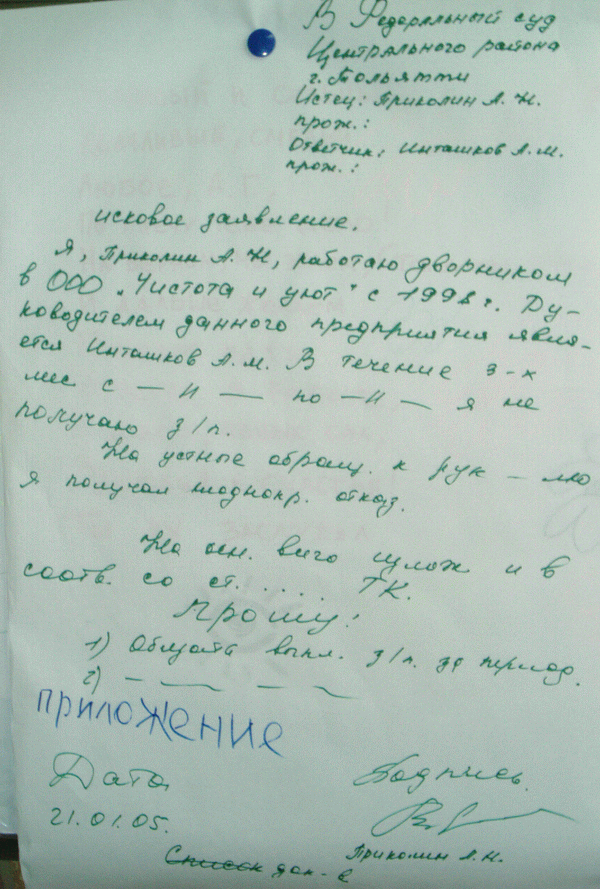 В Федеральный суд
Центрального района
г. Тольятти
Истец: Приколин А. Н.
прож.:
Ответчик: Инташков А. М.
прож.:
исковое заявление.
Я, Приколин А. Н, работаю дворником
в ООО „Чистота и уют" с 1998 г. Ру-
ководителем данного предприятия явля-
ется Инташков А. М. В течение 3-х
мес с — и — по — и — я не
получаю з/п.
На устные обращ. к рук-лю
я получал неоднокр. отказ.
На осн. вышеизлож и в
соотв. со ст. . . . . . ТК.
Прошу:
1) Обязать выпл. з/п. за период.
2) — —
приложение
Дата Подпись.
21.01.05.
Приколин А. Н.
Список док-в